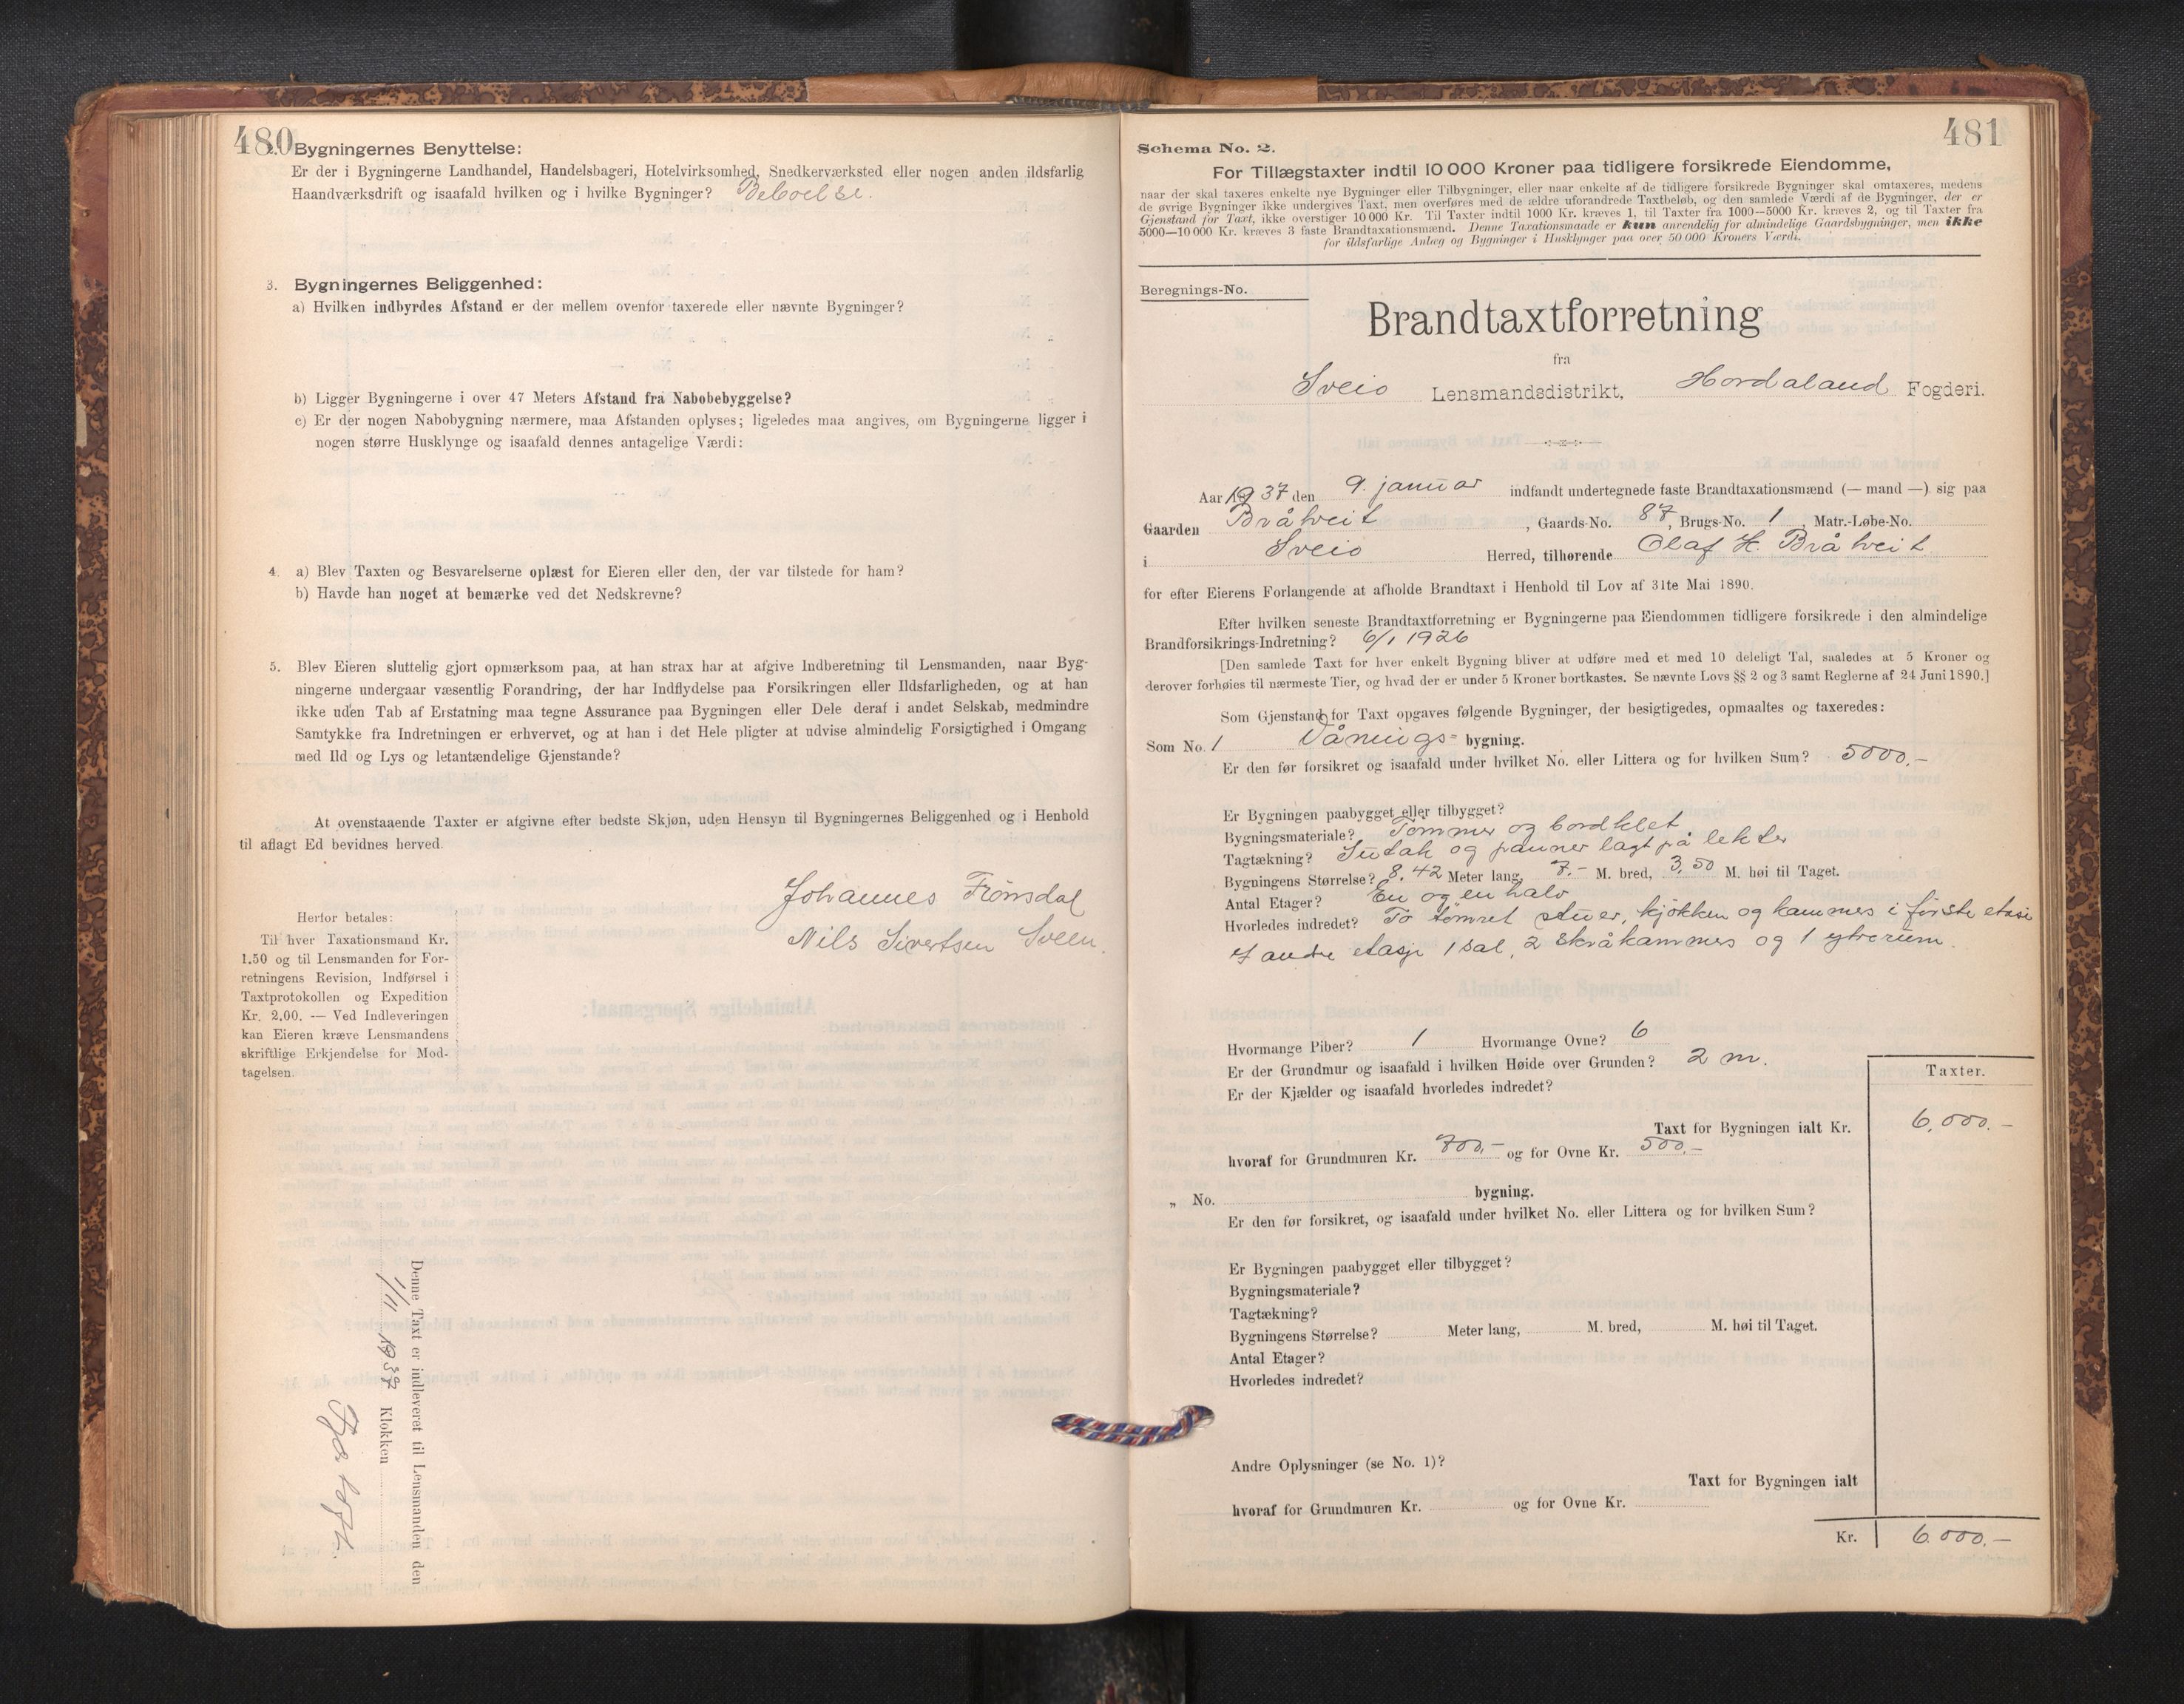 480
2. Bygningernes Benyttelse:
Er der i Bygningerne Landhandel, Handelsbageri, Hotelvirksomhed, Snedkerværksted eller nogen anden ildsfarlig
Haandværksdrift og isaafald hvilken og i hvilke Bygninger? Beboelse.
3. Bygningernes Beliggenhed:
a) Hvilken indbyrdes Afstand er der mellem ovenfor taxerede eller nævnte Bygninger?
b) Ligger Bygningerne i over 47 Meters Afstand fra Nabobebyggelse?
c) Er der nogen Nabobygning nærmere, maa Afstanden oplyses; ligeledes maa angives, om Bygningerne ligger i
nogen større Husklynge og isaafald dennes antagelige Værdi:
4. a) Blev Taxten og Besvarelserne oplæst for Eieren eller den, der var tilstede for ham?
b) Havde han noget at bemærke ved det Nedskrevne?
5. Blev Eieren sluttelig gjort opmærksom paa, at han strax har at afgive Indberetning til Lensmanden, naar Byg-
ningerne undergaar væsentlig Forandring, der har Indflydelse paa Forsikringen eller Ildsfarligheden, og at han
ikke uden Tab af Erstatning maa tegne Assurance paa Bygningen eller Dele deraf i andet Selskab, medmindre
Samtykke fra Indretningen er erhvervet, og at han i det Hele pligter at udvise almindelig Forsigtighed i Omgang
med Ild og Lys og letantændelige Gjenstande?
At ovenstaaende Taxter er afgivne efter bedste Skjøn, uden Hensyn til Bygningernes Beliggenhed og i Henhold
til aflagt Ed bevidnes herved.
Johannes Trönsdal
Nils Sivertsen Sveen.
Herfor betales:
Til hver Taxationsmand Kr.
1.50 og til Lensmanden for For-
retningens Revision, Indførsel i
Taxtprotokollen og Expedition
Kr. 2.00. — Ved Indleveringen
kan Eieren kræve Lensmandens
skriftlige Erkjendelse for Mod-
tagelsen.
Denne Taxt er indleveret til Lensmanden den
1/11 1937 Klokken
481
Schema No. 2.
For Tillægstaxter indtil 10 000 Kroner paa tidligere forsikrede Eiendomme,
naar der skal taxeres enkelte nye Bygninger eller Tilbygninger, eller naar enkelte af de tidligere forsikrede Bygninger skal omtaxeres, medens
de øvrige Bygninger ikke undergives Taxt, men overføres med de ældre uforandrede Taxtbeløb, og den samlede Værdi af de Bygninger, der er
Gjenstand for Taxt, ikke overstiger 10 000 Kr. Til Taxter indtil 1000 Kr. kræves 1, til Taxter fra 1000—5000 Kr. kræves 2, og til Taxter fra
5000—10 000 Kr. kræves 3 faste Brandtaxationsmænd. Denne Taxationsmaade er kun anvendelig for almindelige Gaardsbygninger, men ikke
for ildsfarlige Anlæg og Bygninger i Husklynger paa over 50 000 Kroners Værdi.
Beregnings-No.
Brandtaxtforretning
fra
Sveio Lensmandsdistrikt, Hordaland Fogderi.
Aar 1937 den 9. januar indfandt undertegnede faste Brandtaxationsmænd (— mand —) sig paa
Gaarden Bråtveit, Gaards-No. 87, Brugs-No. 1, Matr.-Løbe-No.
i Sveio Herred, tilhørende Olaf H. Bråtveit
for efter Eierens Forlangende at afholde Brandtaxt i Henhold til Lov af 31te Mai 1890.
Efter hvilken seneste Brandtaxtforretning er Bygningerne paa Eiendommen tidligere forsikrede i den almindelige
Brandforsikrings-Indretning? 6/1 1926
[Den samlede Taxt for hver enkelt Bygning bliver at udføre med et med 10 deleligt Tal, saaledes at 5 Kroner og
derover forhøies til nærmeste Tier, og hvad der er under 5 Kroner bortkastes. Se nævnte Lovs §§ 2 og 3 samt Reglerne af 24 Juni 1890.]
Som Gjenstand for Taxt opgaves følgende Bygninger, der besigtigedes, opmaaltes og taxeredes:
Som No. 1 Vånings- bygning.
Er den før forsikret og isaafald under hvilket No. eller Littera og for hvilken Sum? 5000.-
Er Bygningen paabygget eller tilbygget?
Bygningsmateriale? Tømmer og bordklet
Tagtækning? Sutak og panner lagt på lekter
Bygningens Størrelse? 8.42 Meter lang, 7.- M. bred, 3,50 M. høi til Taget.
Antal Etager? En og en halv
Hvorledes indredet? To tømret stuer, kjøkken og kammers i første etasje
I andre etasje 1 sal, 2 skråkammers og 1 ytrerum.
Hvormange Piber? 1 Hvormange Ovne? 6
Er der Grundmur og isaafald i hvilken Høide over Grunden? 2 m.
Er der Kjælder og isaafald hvorledes indredet?
Taxter.
Taxt for Bygningen ialt Kr. 6.000.-
hvoraf for Grundmuren Kr. 700.- og for Ovne Kr. 500.-
„ No. bygning.
Er den før forsikret, og isaafald under hvilket No. eller Littera og for hvilken Sum?
Er Bygningen paabygget eller tilbygget?
Bygningsmateriale?
Tagtækning?
Bygningens Størrelse? Meter lang, M. bred, M. høi til Taget.
Antal Etager?
Hvorledes indredet?
Andre Oplysninger (se No. 1)?
Taxt for Bygningen ialt
hvoraf for Grundmuren Kr. og for Ovne Kr.
Kr. 6.000.-